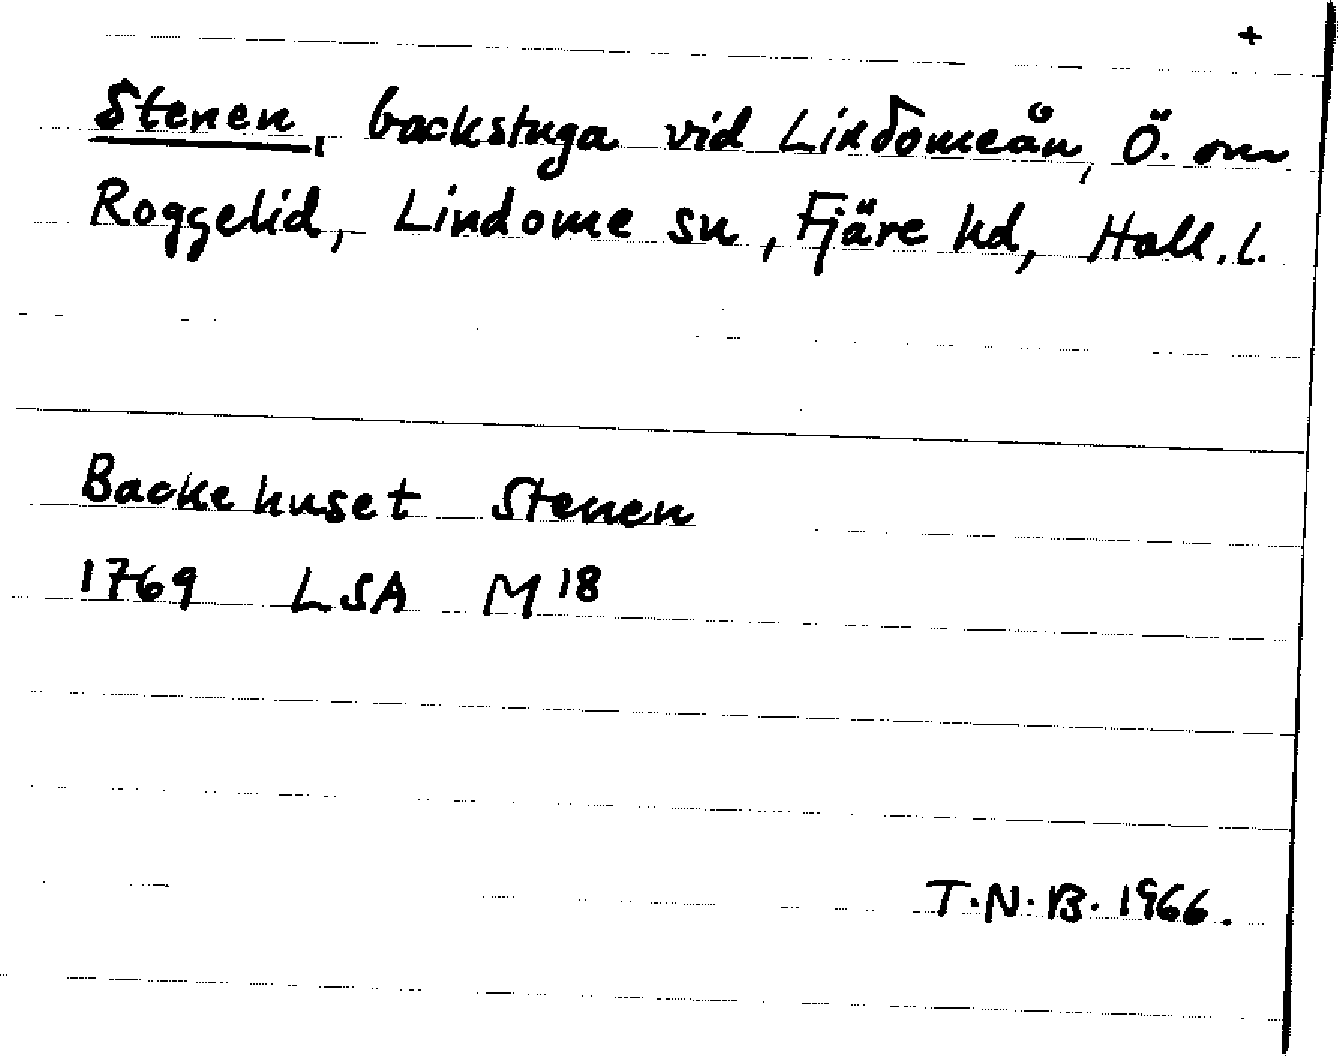 +
Stenen, backstuga vid Lindomeån, Ö. om
Roggelid, Lindome sn, Fjäre hd, Hall. l.
Backehuset Stenen
1769 LSA M 18
T.N.B. 1966.